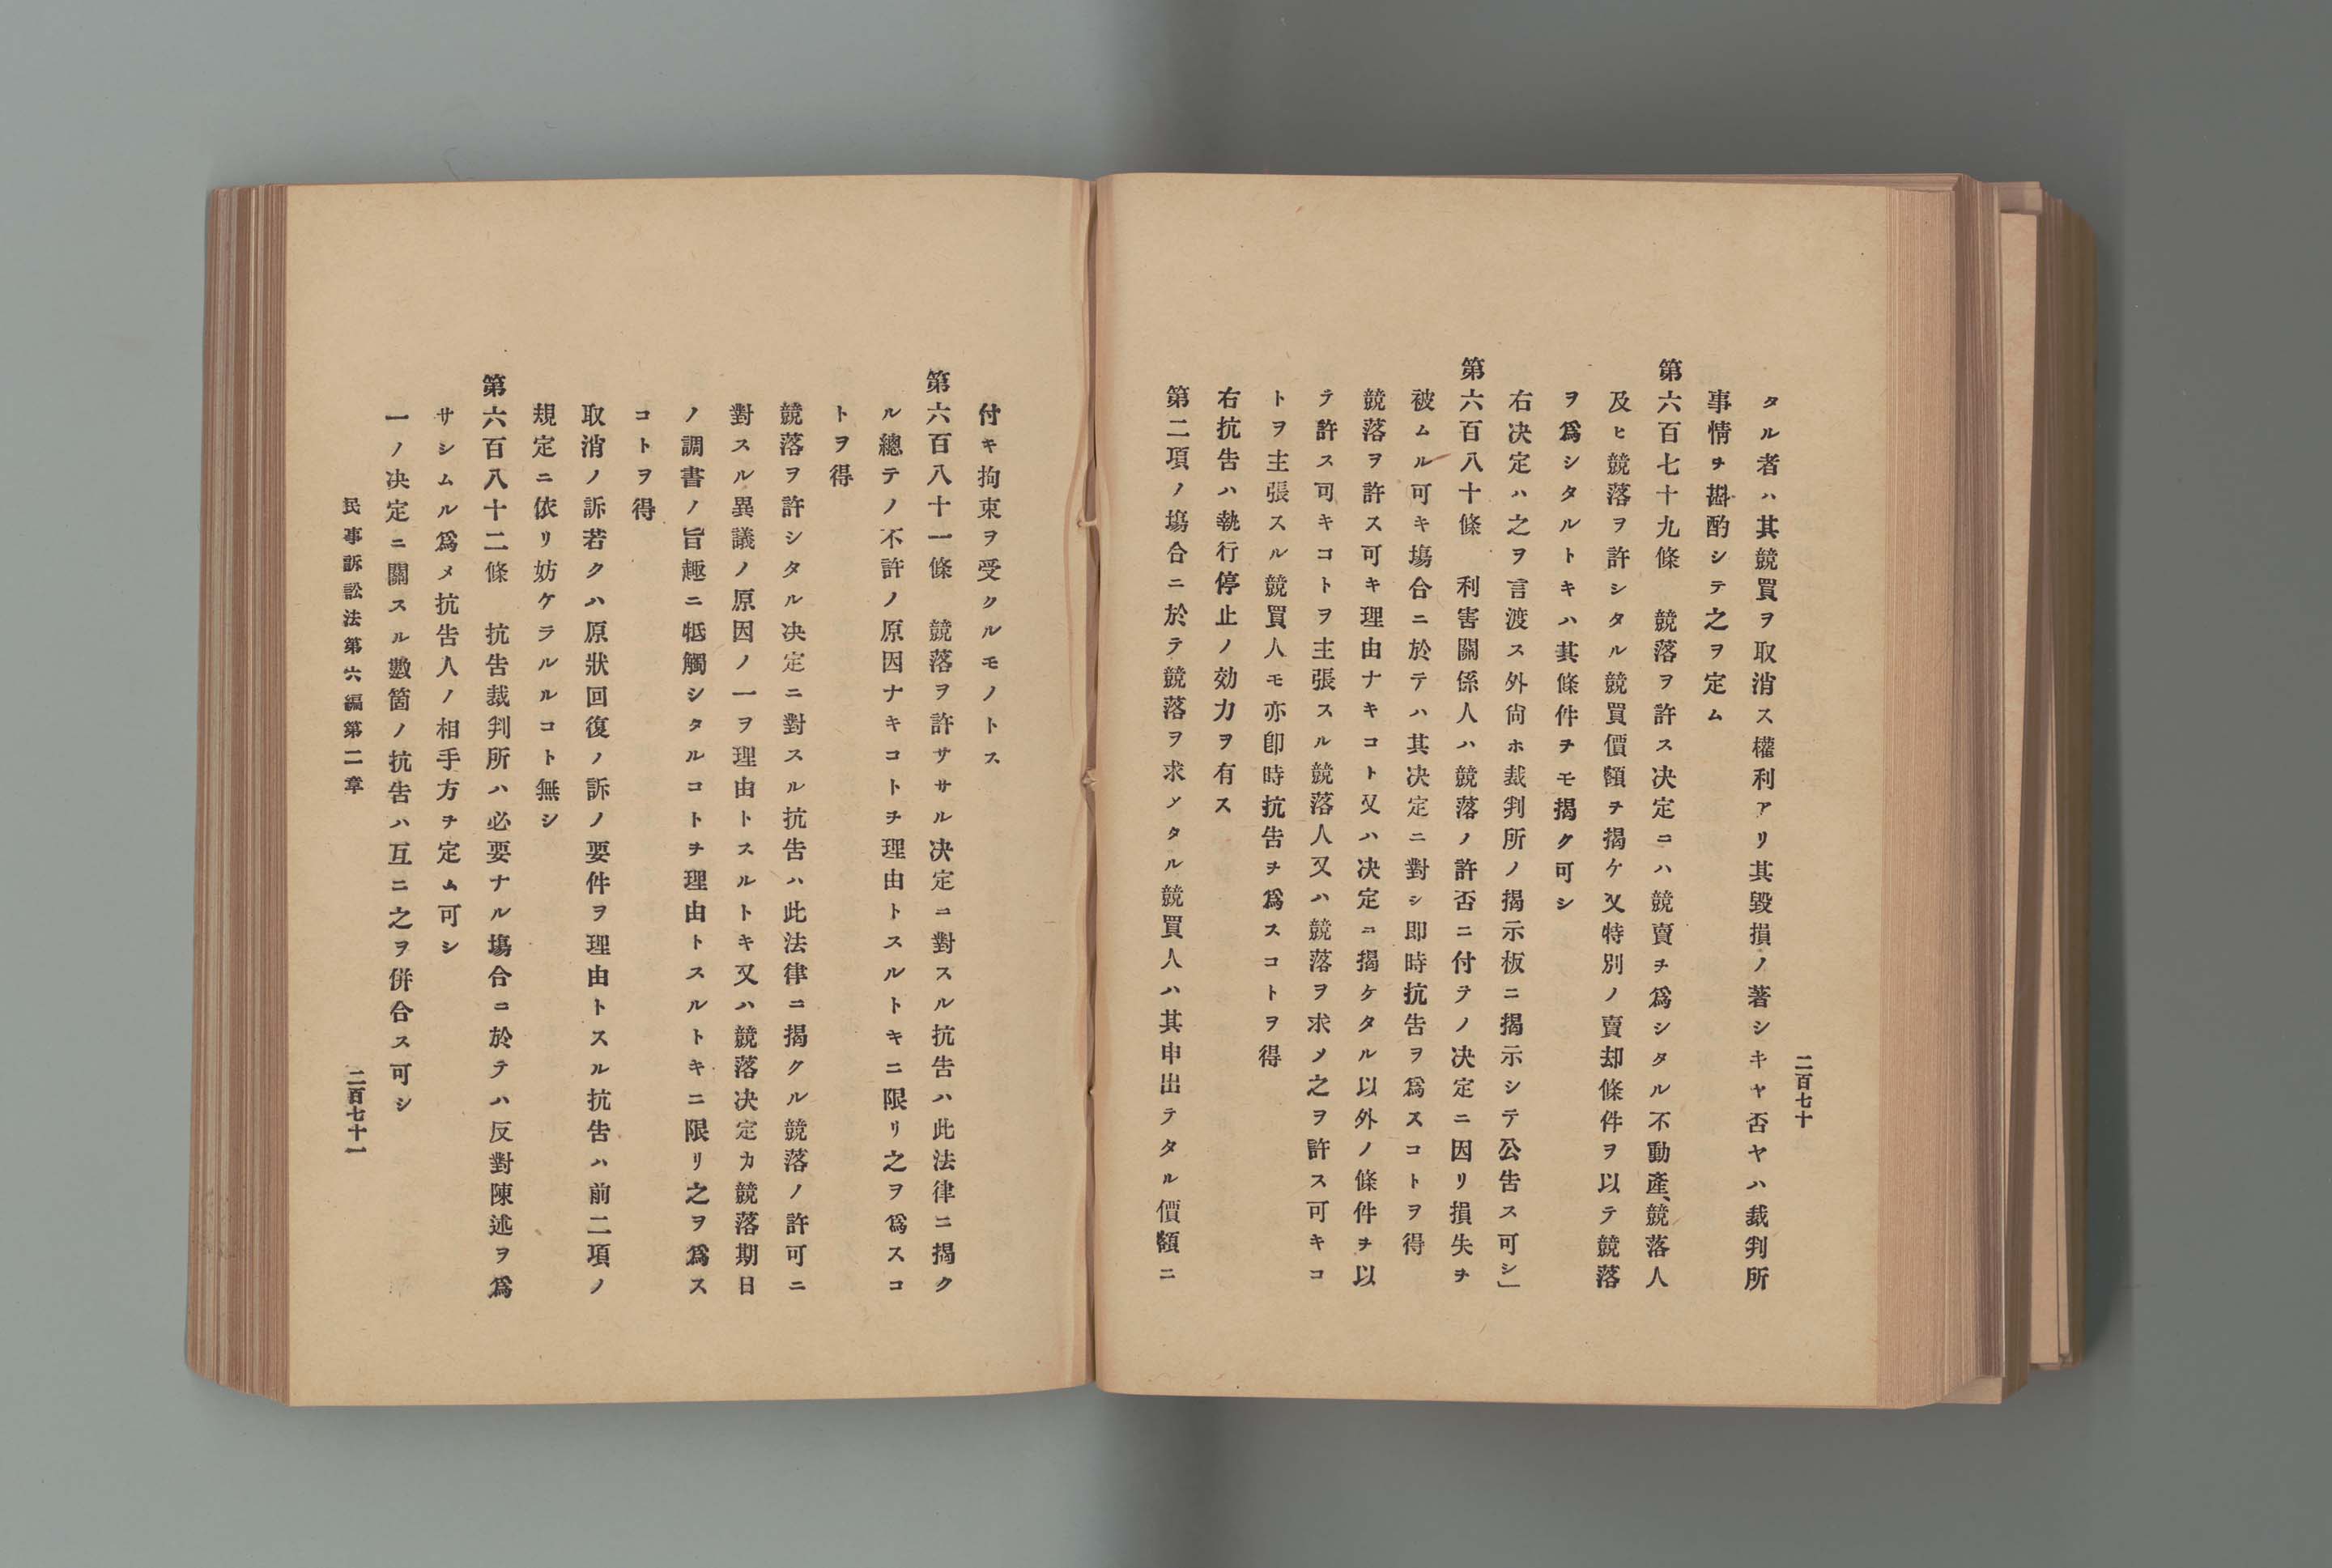 二百七十
タル者ハ其競買ヲ取消ス權利アリ其毀損ノ著シキヤ否ヤハ裁判所
事情ヲ斟酌シテ之ヲ定ム
第六百七十九條　競落ヲ許ス決定ニハ競賣ヲ爲シタル不動產、競落人
及ヒ競落ヲ許シタル競買價額ヲ揭ケ又特別ノ賣却條件ヲ以テ競落
ヲ爲シタルトキハ其條件ヲモ揭ク可シ
右決定ハ之ヲ言渡ス外尙ホ裁判所ノ揭示板ニ揭示シテ公吿ス可シ」
第六百八十條　利害關係人ハ競落ノ許否ニ付テノ決定ニ因リ損失ヲ
被ムル可キ塲合ニ於テハ其決定ニ對シ即時抗告ヲ爲スコトヲ得
競落ヲ許ス可キ理由ナキコト又ハ決定ニ揭ケタル以外ノ條件ヲ以
テ許ス可キコトヲ主張スル競落人又ハ競落ヲ求メ之ヲ許ス可キコ
トヲ主張スル競買人モ亦卽時抗告ヲ爲スコトヲ得
右抗告ハ執行停止ノ効力ヲ有ス
第二項ノ塲合ニ於テ競落ヲ求メタル競買人ハ其申出テタル價額ニ
付キ拘束ヲ受クルモノトス
第六百八十一條　競落ヲ許ササル決定ニ對スル抗告ハ此法律ニ揭ク
ル總テノ不許ノ原因ナキコトヲ理由トスルトキニ限リ之ヲ爲スコ
トヲ得
競落ヲ許シタル決定ニ對スル抗吿ハ此法律ニ揭クル競落ノ許可ニ
對スル異議ノ原因ノ一ヲ理由トスルトキ又ハ競落決定カ競落期日
ノ調書ノ旨趣ニ牴觸シタルコトヲ理由トスルトキニ限リ之ヲ爲ス
コトヲ得
取消ノ訴若クハ原狀回復ノ訴ノ要件ヲ理由トスル抗吿ハ前二項ノ
規定ニ依リ妨ケラルルコト無シ
第六百八十二條　抗吿裁判所ハ必要ナル塲合ニ於テハ反對陳述ヲ爲
サシムル爲メ抗吿人ノ相手方ヲ定ム可シ
一ノ決定ニ關スル數箇ノ抗吿ハ互ニ之ヲ併合ス可シ
民事訴訟法第六編第二章
二百七十一